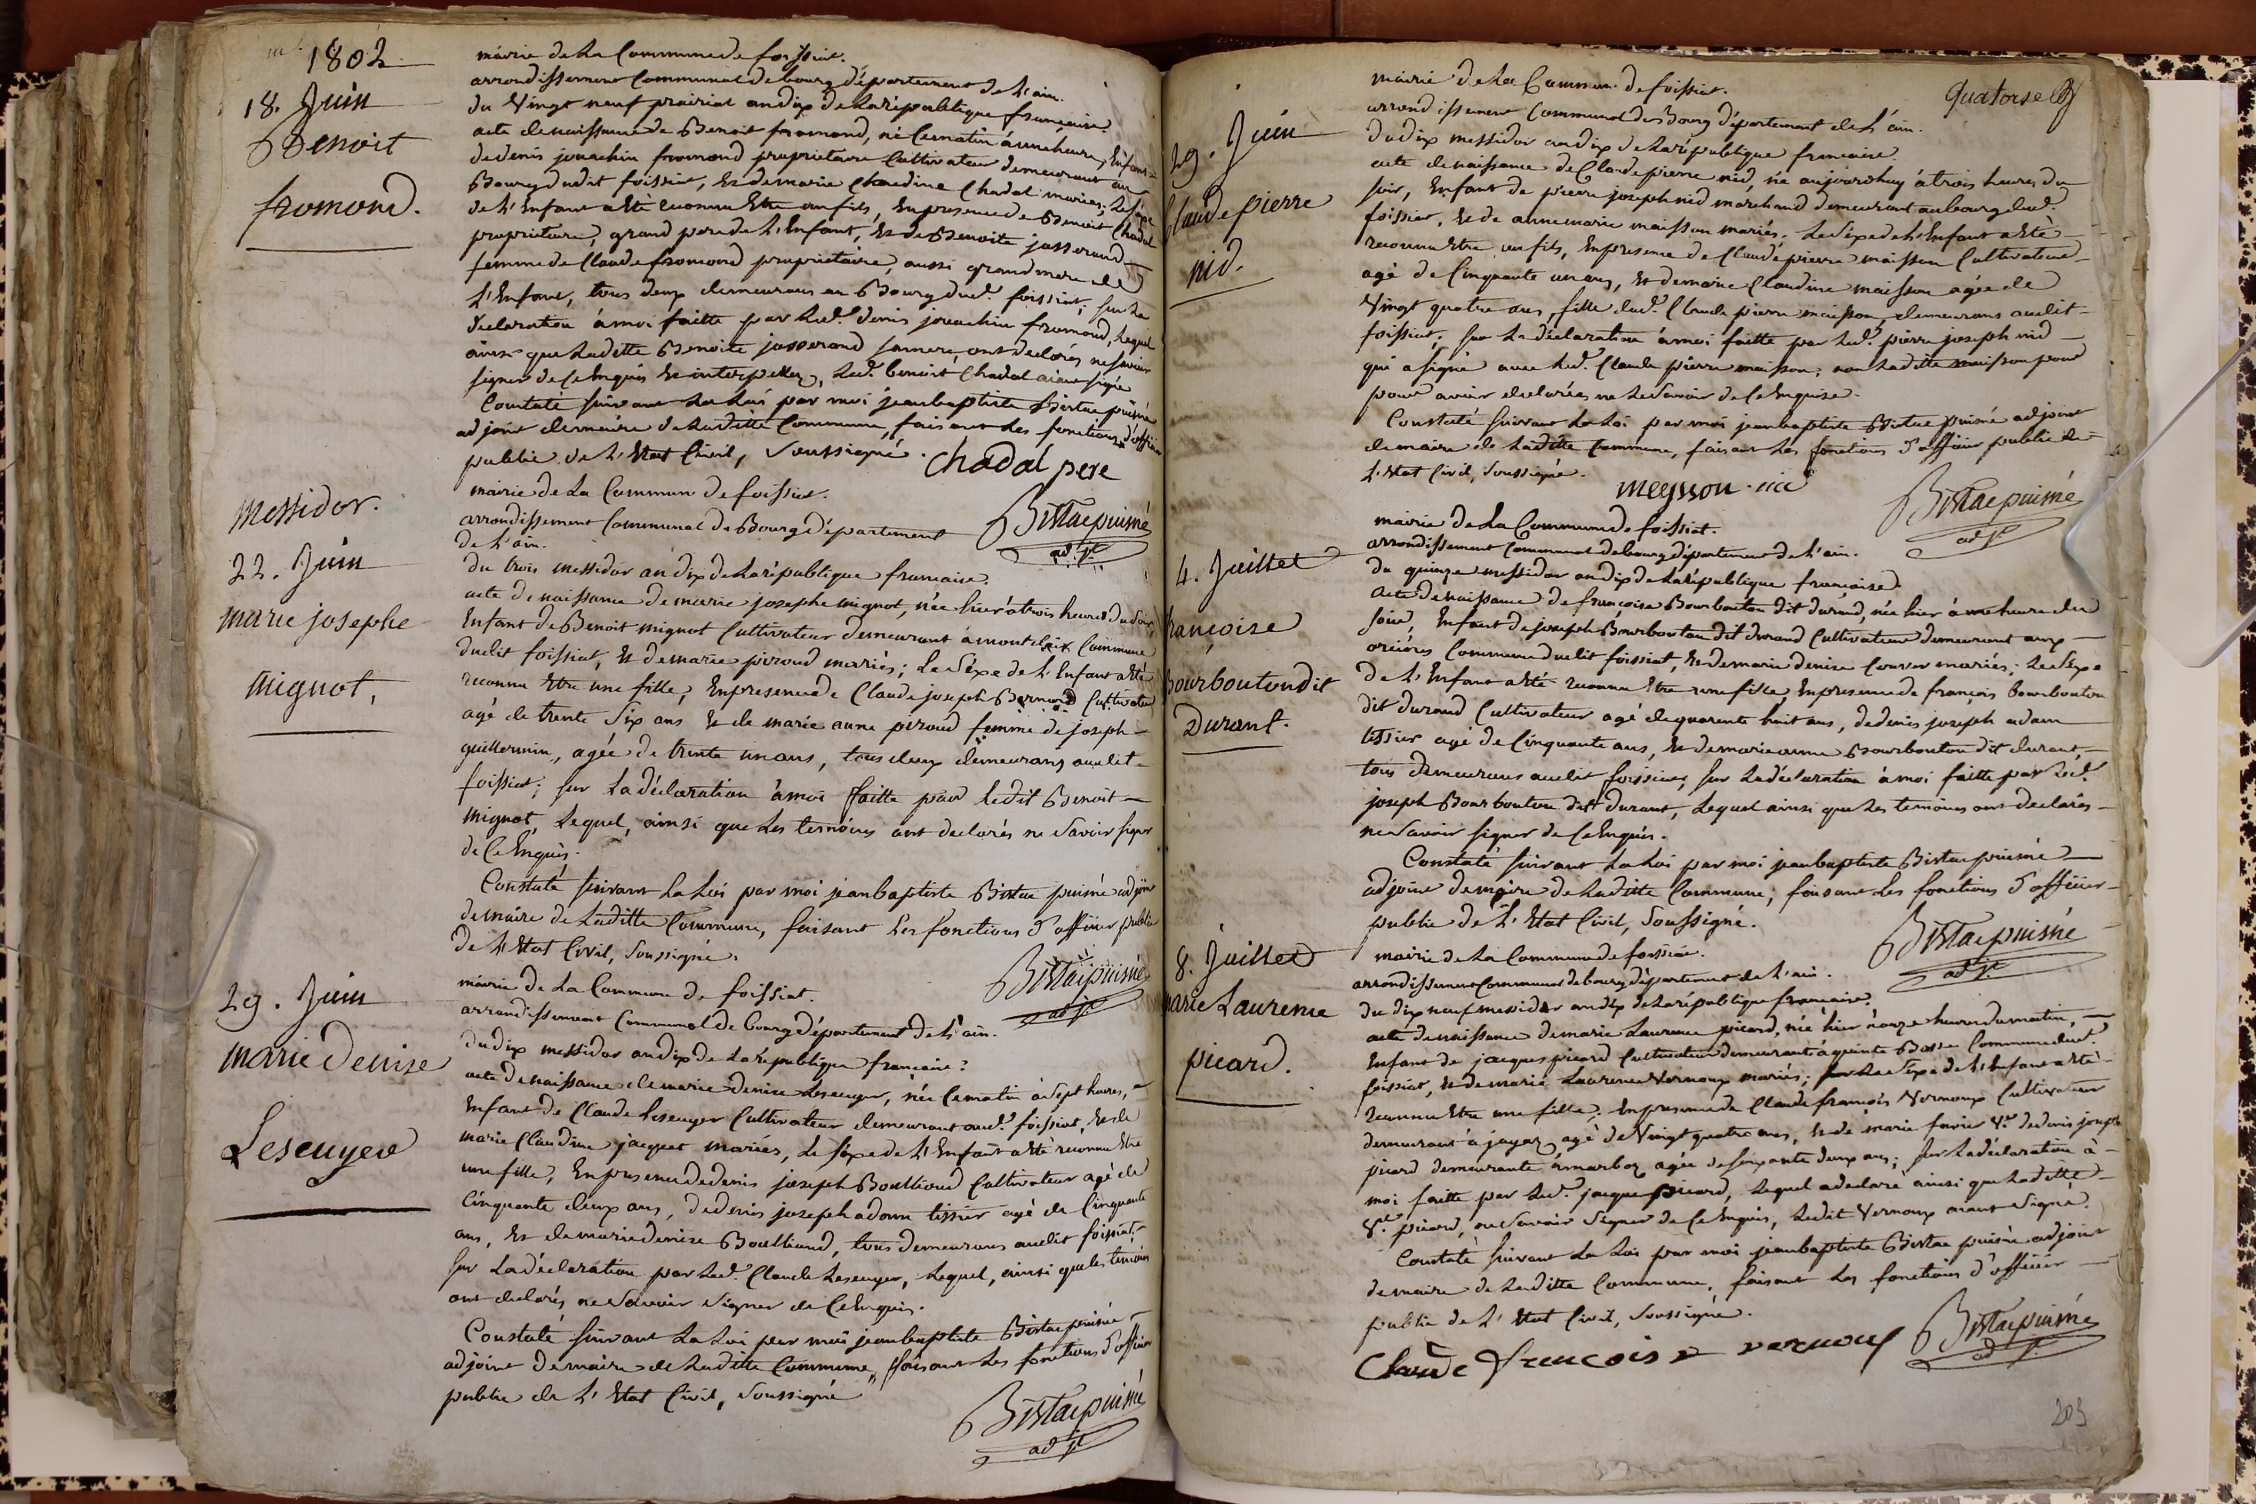 1802
18. Juin
Benoit
fromond.
mairie de La Commune de foissiat.
arrondissement Communal de bourg département de L'ain.
du Vingt neuf prairial an dix de La république française.
acte de naissance de Benoit fromond, né Ce matin à une heure, Enfant
de denis jouachin fromond propriétaire Cultivateur demeurant au
Bourg dudit foissiat, Et de marie Claudine Chadal mariés; Le Séxe
de L'Enfant a Eté reconnu Etre un fils, En presence de Benoit Chadal
propriétaire, grand pere de L'Enfant, Et de Benoite josserand
femme de Claude fromond propriétaire, aussi grand mere de
L'Enfant, tous deux demeurans au Bourg dud.t foissiat; sur La
declaration à moi faitte par Led.t denis jouachin fromond, Lequel
ainsi que Laditte Benoite josserand sa mere, ont declarés ne savoir
signer de Ce Enquis Et interpellez, Led.t benoit Chadal aiant signé
Constaté suivant La Loi par moi jean baptiste Bistac puisné
adjoint de maire de Laditte Commune, faisant Les fonctions d'officier
public de L'Etat Civil, Soussigné.
Chadal pere
Bistac puisné
adj.t
messidor.
22. Juin
marie josephe
mignot,
mairie de La Commune de foissiat.
arrondissement Communal de Bourg département
de L'ain.
du trois messidor an dix de La république française.
acte de naissance de marie josephe mignot, née hier à trois heures du soir,
Enfant de Benoit mignot Cultivateur demeurant à montclaix Commune
dudit foissiat, Et de marie piroud mariés; Le Séxe de L'Enfant a Eté
reconnu Etre une fille, En presence de Claude joseph Bernard Cultivateur
agé de trente Six ans Et de marie anne piroud femme de joseph
guillermin, agée de trente un ans, tous deux demeurans audit
foissiat; sur La déclaration à moi faitte par Ledit Benoit
mignot, Lequel, ainsi que Les temoins ont declarés ne Savoir signer
de Ce Enquis.
Constaté suivant La Loi par moi jean baptiste Bistac puisné adjoint
de maire de Laditte Commune, faisant Les fonctions d'officier public
de L'Etat Civil, Soussigné.
Bistac puisné
adj.t
29. Juin
marie Denise
Lescuyer
mairie de La Commune de foissiat.
arrondissement Communal de bourg département de L'ain.
du dix messidor an dix de La république française.
acte de naissance de marie denise Lescuyer, née Ce matin à Sept heures,
Enfant de Claude Lescuyer Cultivateur demeurant aud.t foissiat, Et de
marie Claudine jacquet mariés, Le Séxe de L'Enfant a Eté reconnu Etre
une fille, En presence de denis joseph Boullioud Cultivateur agé de
Cinquante deux ans, de denis joseph adam tissier agé de Cinquante
ans, Et de marie denise Boulliaud, tous demeurans audit foissiat.
sur La déclaration par Led.t Claude Lescuyer, Lequel, ainsi que les temoins
ont declarés ne Savoir signer de Ce Enquis.
Constaté suivant La Loi par moi jean baptiste Bistac puisné
adjoint de maire de Laditte Commune, faisant Les fonctions d'officier
public de L'Etat Civil, Soussigné
Bistac puisné
adj.t
quatorse
29. Juin
Claude pierre
nid.
mairie de La Commune de foissiat.
arrondissement Communal de Bourg département de L'ain.
du dix messidor an dix de La république française.
acte de naissance de Claude pierre nid, né aujourdhuy à trois heures du
soir, Enfant de pierre joseph nid marchand demeurant au bourg dud.t
foissiat, Et de anne marie maisson mariés. Le Séxe de L'Enfant a Eté
reconnu Etre un fils, En presence de Claude pierre maisson Cultivateur
agé de Cinquante un ans, Et de marie Claudine maisson agée de
Vingt quatre ans, fille dud.t Claude pierre maisson, demeurans audit
foissiat; sur La déclaration à moi faitte par Led.t pierre joseph nid
qui a signé avec Led.t Claude pierre maisson; non Laditte maisson pour
pour avoir declarée ne Le Savoir de Ce Enquise.
Constaté suivant La Loi par moi jean baptiste Bistac puisné adjoint
de maire de Laditte Commune, faisant Les fonctions d'officier public de
L'Etat Civil, Soussigné.
meysson nid
Bistac puisné
adj.t
4. Juillet
françoise
bourbouton dit
Durant.
mairie de La Commune de foissiat.
arrondissement Communal de bourg département de L'ain.
du quinze messidor an dix de La république française
acte de naissance de françoise Bourbouton dit durand, née hier à une heure du
soir, Enfant de joseph Bourbouton dit durand Cultivateur demeurant aux
orières Commune dudit foissiat, Et de marie denise Couvar mariés; Le Sexe
de L'Enfant a Eté reconnu Etre une fille, En presence de françois bourbouton
dit durand Cultivateur agé de quarante huit ans, de denis joseph adam
tissier agé de Cinquante ans, Et de marie anne Bourbouton dit durant
tous demeurans audit foissiat, sur La déclaration à moi faitte par Led.t
joseph Bourbouton dit durant, Lequel ainsi que Les temoins ont declarés
ne Savoir signer de Ce Enquis.
Constaté suivant La Loi par moi jean baptiste Bistac puisné
adjoint de maire de Laditte Commune, faisant Les fonctions d'officier
public de L'Etat Civil, Soussigné.
Bistac puisné
adj.t
8. Juillet
marie Laurence
picard.
mairie de La Commune de foissiat.
arrondissement Communal de bourg département de L'ain.
du dix neuf messidor an dix de La république française.
acte de naissance de marie Laurence picard, née hier à onze heures du matin,
Enfant de jacques picard Cultivateur demeurant à Basse Commune dud.t
foissiat, Et de marie Laurence Vernoux mariés; Le Sexe de L'Enfant a Eté
reconnu Etre une fille; En presence de Claude françois Vernoux Cultivateur
demeurant à jayaz agé de Vingt quatre ans, Et de marie favier V.e de denis joseph
picard demeurante à marboz agée de soixante deux ans; sur La déclaration à
moi faitte par Led.t jacque picard, Lequel a declaré ainsi que Laditte
V.e picard, ne Savoir Signer de Ce Enquis, Ledit Vernoux aiant Signé.
Constaté suivant La Loi par moi jean baptiste Bistac puisné adjoint
de maire de Laditte Commune, faisant Les fonctions d'officier
public de L'Etat Civil, Soussigné.
Claude francois vernoux
Bistac puisné
adj.t
203